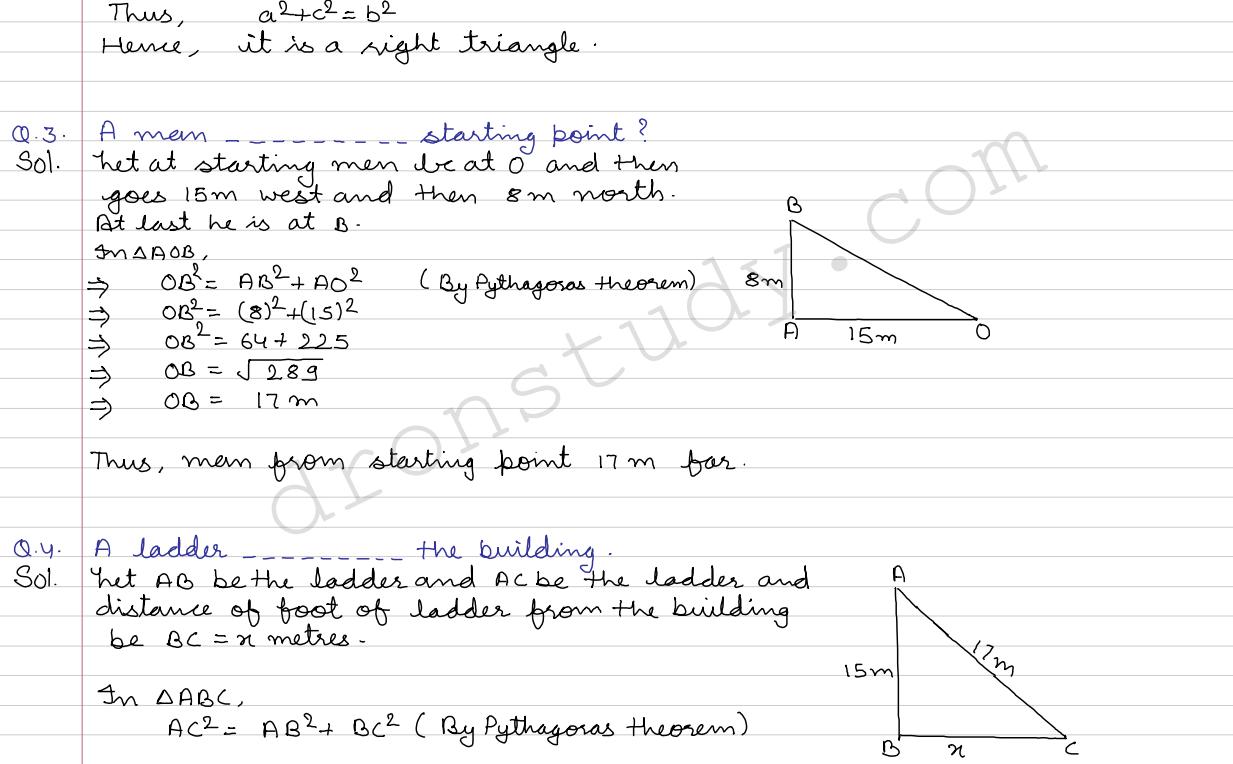 Thus, a²+c² = b²
Hence, it is a right triangle.
Q.3. A man _ _ _ _ _ _ _ _ _ starting point?
Sol. Let at starting men be at O and then
goes 15m west and then 8m north.
At last he is at B.
In △AOB,
⇒ OB² = AB² + AO² (By Pythagoras theorem)
⇒ OB² = (8)²+(15)²
⇒ OB² = 64 + 225
⇒ OB = √289
⇒ OB = 17 m
B
8m
A 15m O
Thus, men from starting point 17 m far.
Q.4. A ladder _ _ _ _ _ _ _ _ _ the building.
Sol. Let AB be the ladder and AC be the ladder and
distance of foot of ladder from the building
be BC = x metres.
In △ABC,
AC² = AB² + BC² (By Pythagoras theorem)
A
15m 17m
B x C
dronstudy.com